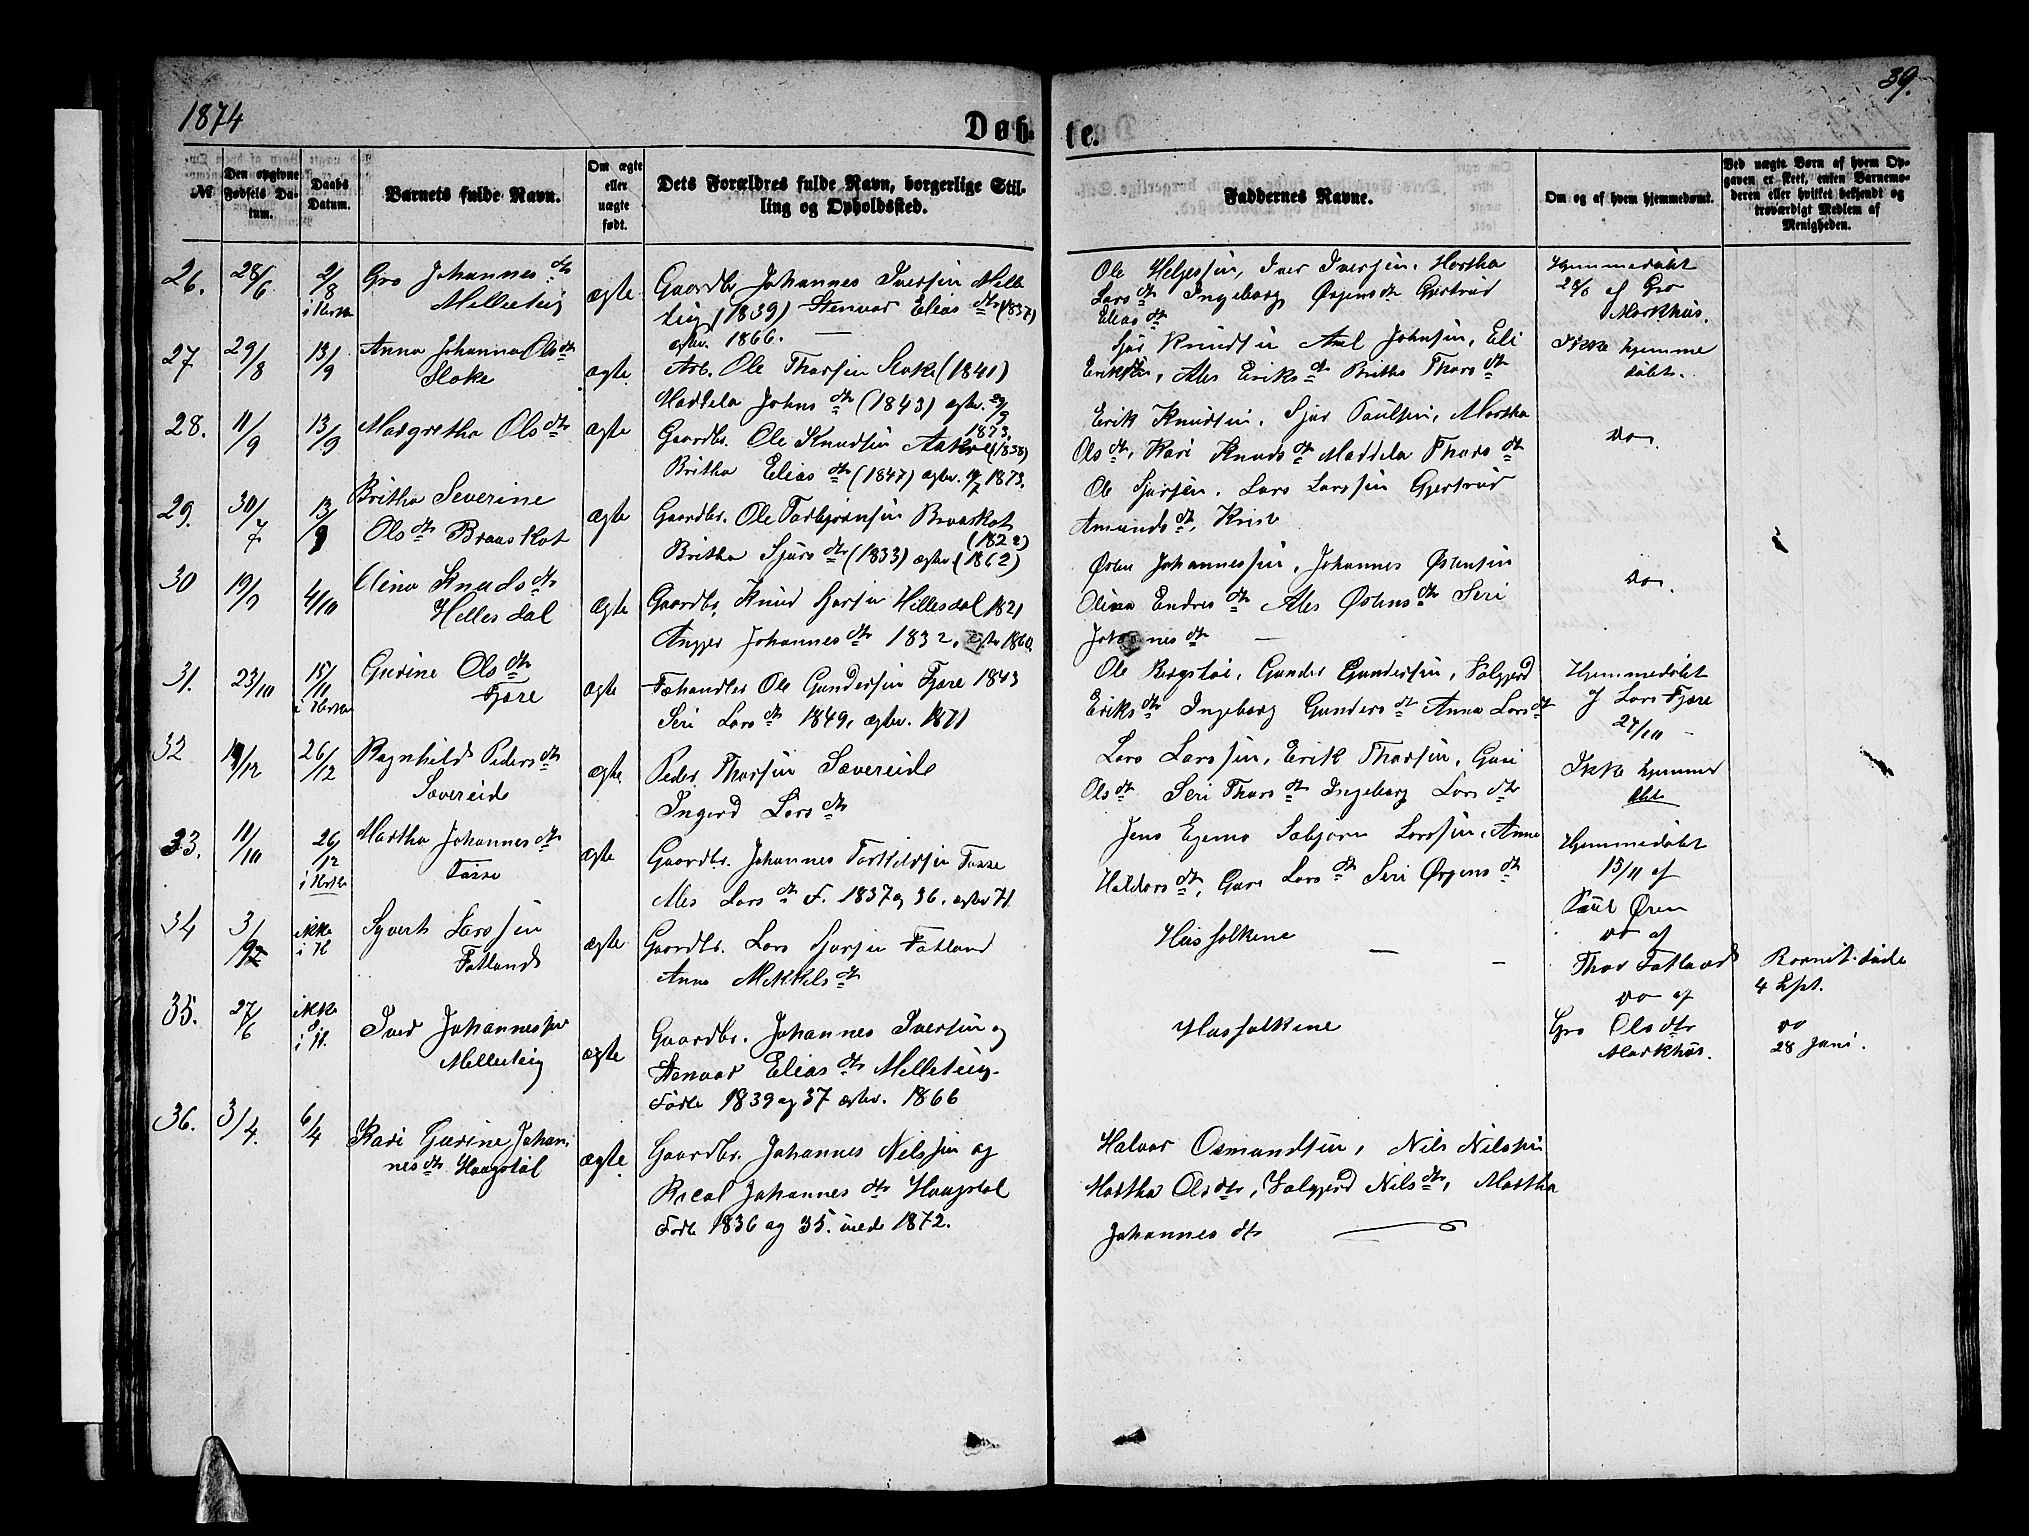 1874
Døb-
te.
39.
№
Den opgivne Fødsels Datum.
Daabs Datum.
Barnets fulde Navn.
Om ægte eller uægte født.
Dets Forældres fulde Navn, borgerlige Stilling og Opholdssted.
Faddernes Navne.
Om og af hvem hjemmedøbt.
Ved uægte Børn af hvem Opgaven er skeet, enten Barnemoderen eller hvilket bekjendt og troværdigt Medlem af Menigheden.
26. 28/6 2/8 i Kirke Gro Johannes dtr
Melleteig
ægte
Gaardbr. Johannes Iversen Melle
teig (1839) Stenvor Elias dtr (1837)
ægtev. 1866.
Ole Helgessen, Iver Iversen, Martha
Lars dtr Ingeborg Ørjens dtr Gjertrud
Elias dtr
Hjemmedøbt
28/6 af Gro
Markhus.
27 29/8 13/9 Anna Johanna Ols dtr
ægte
Arb. Ole Thorsen (1841)
Maddela Johns dtr (1843) ægtev.
1873.
Sjur Knudsen Johnsen, Eli
Ales Eriks dtr Britha Thors dtr
Ikke hjemme
døbt.
28. 11/9 13/9 Margretha Ols dtr
ægte
Gaardbr. Ole Knudsen Aakre (1838)
Britha Elias dtr (1847) ægtev. 1873.
Erik Knudsen, Sjur Paulsen, Martha
Ols dtr, Kari Knuds dtr Maddela Thors dtr
do
29. 30/7 13/9 Britha Severine
Ols dtr Braaskot
ægte
Gaardbr. Ole Torbjønsen Braaskot
(1822)
Britha Sjurs dtr (1833) ægtev. (1862)
Ole Sjursen, Lars Larssen Gjertrud
Amunds dtr,
30 19/7 4/10 Elina Knuds dtr
Hellesdal
ægte
Gaardbr. Knud Hellesdal 1821
Johannes dtr 1832, ægtev 1860.
Østen Johannessen, Johannes Østensen
Endres dtr Ales Østens dtr Seri
Johannes dtr
do
31. 23/10 15/11 i Kirke Gurine Ols dtr
Fjære
ægte
Fæhandler Ole Gundersen Fjære 1843
Seri Lars dtr 1849, ægtev. 1871
Ole Bergstøl, Gunder Gundersen, Valgjerd
Eriks dtr Ingeborg Gunders dtr Anna Lars dtr
Hjemmedøbt
af Lars Fjære
27/10
32 26/12 Ragnhild Peders dtr
Sævereide
ægte
Peder Thorsen Sævereide
Ingerd Lars dtr
Lars Larssen, Erik Thorsen, Guri
Ols dtr Seri Thors dtr Ingeborg Lars dtr
Ikke hjemme
døbt
33. 11/10 26/12 i Kirke Martha Johannes dtr
Tosse
ægte
Gaardbr. Johannes Torkildsen Tosse
Ales Lars dtr F. 1837 og 36. ægtev 71.
Jens Larssen, Anna
Haldors dtr, Guri Lars dtr Seri Ørjens dtr
Hjemmedøbt
15/11 af
Paul Øren
34 3/9 ikke i K Syvert Larssen
Fatland
ægte
Gaardbr. Lars Sjursen Fatland
Anna Mikkels dtr
Husfolkene
do af
Thor Fatland
Barnet døde
4 Spt.
35. 27/6 ikke i K. Iver Johannessen
Melleteig
ægte
Gaardbr. Johannes Iversen og
Stenvor Elias dtr Melleteig.
Fødte 1839 og 37 ægtev. 1866
Husfolkene
do af
Gro Ols dtr
Markhus.
do
28 Juni.
36. 3/4. 6/4 Kari Gurine Johan
nes dtr Haagstøl
ægte
Gaardbr. Johannes Nilssen og
Johannes dtr Haagstøl
Fødte 1836 og 35. 1872.
Halvor Osmundsen, Nils Nilssen
Martha Ols dtr, Valgjerd Nils dtr, Martha
Johannes dtr